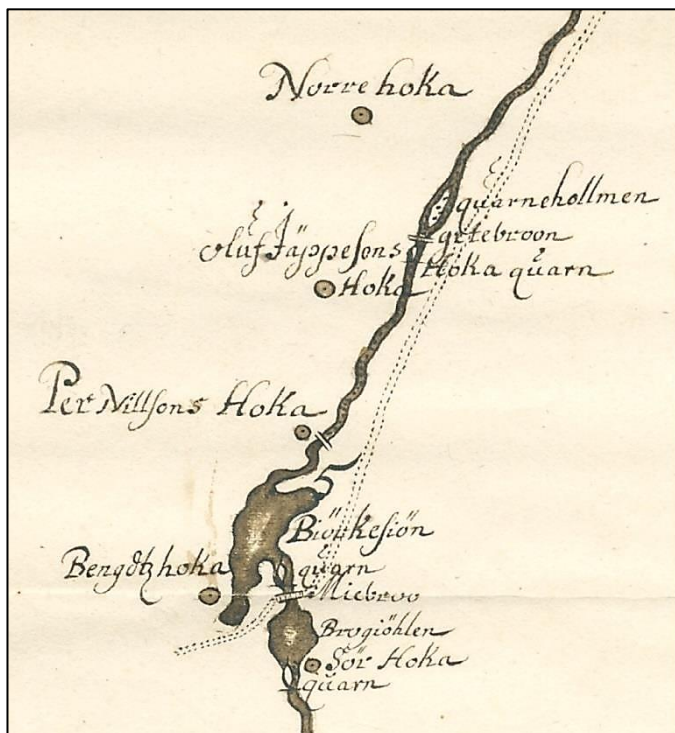 Norre hoka
quarnehollmen
getebroon
Oluf Jäppesons
Hoka quarn
Hoka
Per Nillsons Hoka
Biörkesiön
quarn
Bengdtz hoka
Miebroo
Brogiöhlen
Sör Hoka
quarn